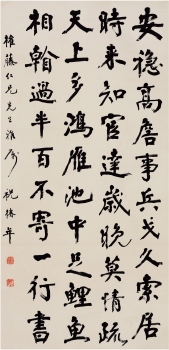 安穩高詹事兵戈久索居
時來知宦達歲晚莫情疏
天上多鴻雁池中足鯉魚
相看過半百不寄一行書
仁兄先生雅屬
祝椿年